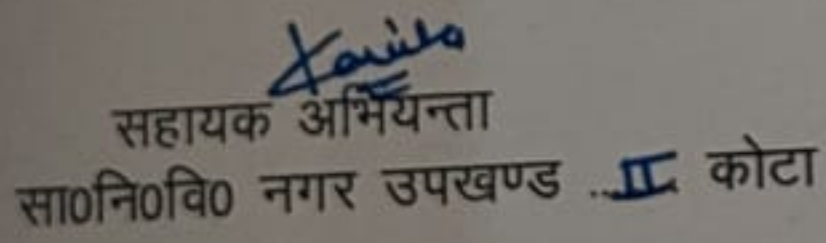 सहायक अभियन्ता
सा०नि०वि० नगर उपखण्ड ..II कोटा